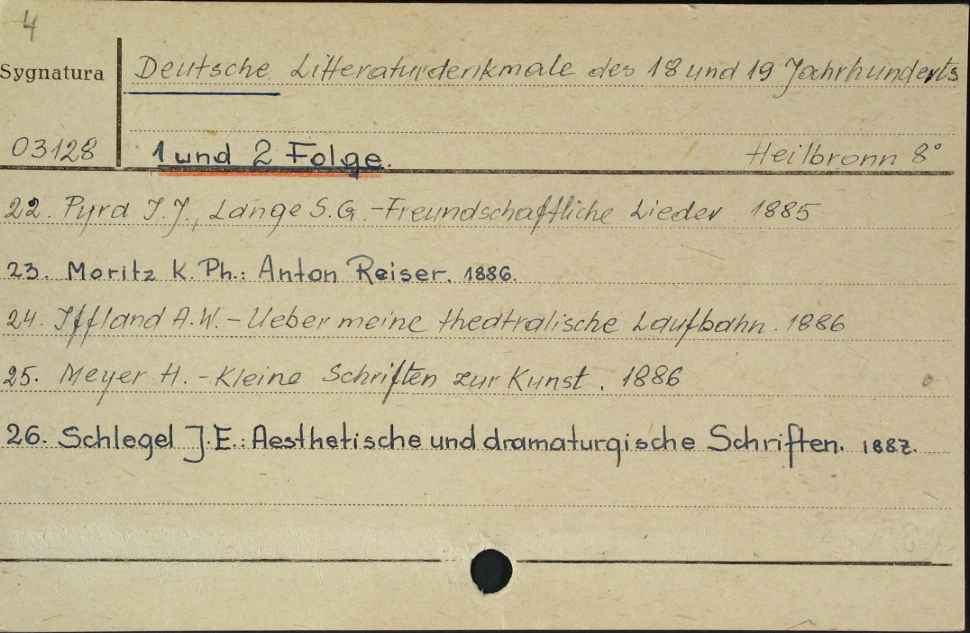 4
Sygnatura
Deutsche Litteraturdenkmale des 18 und 19 Jahrhunderts
03128
1 und 2 Folge.
Heilbronn 8°
22. Pyra I. J., Lange S. G. - Freundschaftliche Lieder 1885
23. Moritz K. Ph.: Anton Reiser. 1886.
24. Iffland A. W. - Ueber meine theatralische Laufbahn. 1886
25. Meyer H. - Kleine Schriften zur Kunst. 1886
26. Schlegel J. E.: Aesthetische und dramaturgische Schriften. 1887.